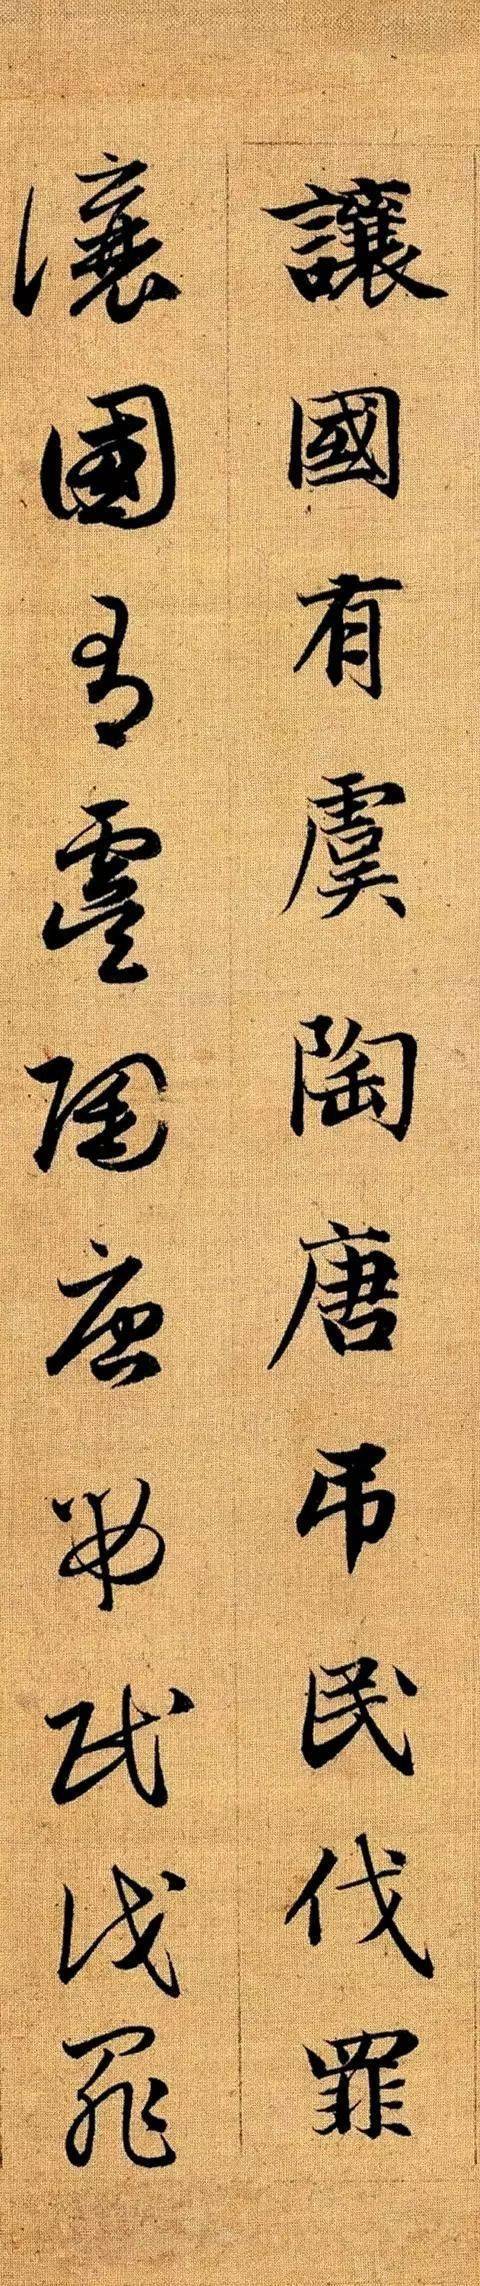 讓國有虞陶唐吊民伐罪
讓國有虞陶唐吊民伐罪